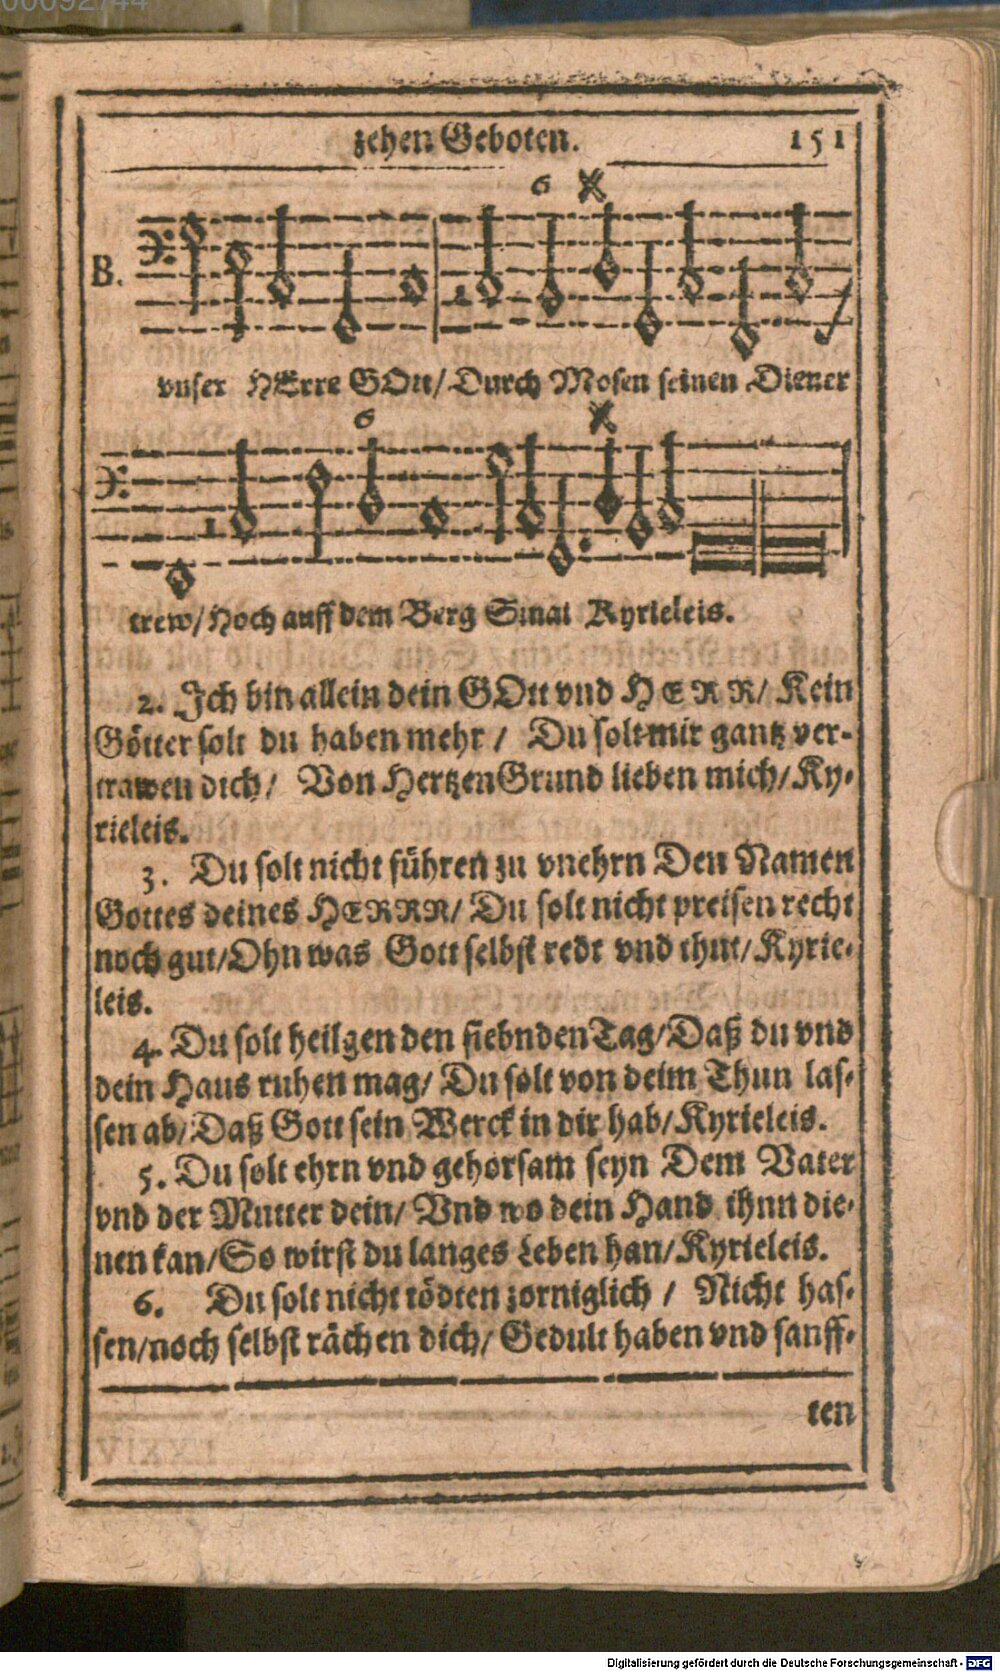 00092744
zehen Geboten. 151
6
B.
vnser HErre GOtt/Durch Mosen seinen Diener
6
trew/Hoch auff dem Berg Sinai Kyrieleis.
2. Ich bin allein dein GOtt vnd HERR/ Kein
Götter solt du haben mehr / Du solt mir gantz ver-
trawen dich/ Von HertzenGrund lieben mich/Ky-
rieleis.
3. Du solt nicht führen zu vnehrn Den Namen
Gottes deines HERRN/ Du solt nicht preisen recht
noch gut/Ohn was Gott selbst redt vnd thut/Kyrie-
leis.
4. Du solt heilgen den siebnden Tag/Daß du vnd
dein Haus ruhen mag/ Du solt von deim Thun las-
sen ab/Daß Gott sein Werck in dir hab/Kyrieleis.
5. Du solt ehrn vnd gehorsam seyn Dem Vater
vnd der Mutter dein/ Vnd wo dein Hand ihnn die-
nen kan/So wirst du langes Leben han/Kyrieleis.
6. Du solt nicht tödten zorniglich / Nicht has-
sen/noch selbst rächen dich/ Gedult haben vnd sanff-
ten
Digitalisierung gefördert durch die Deutsche Forschungsgemeinschaft - DFG